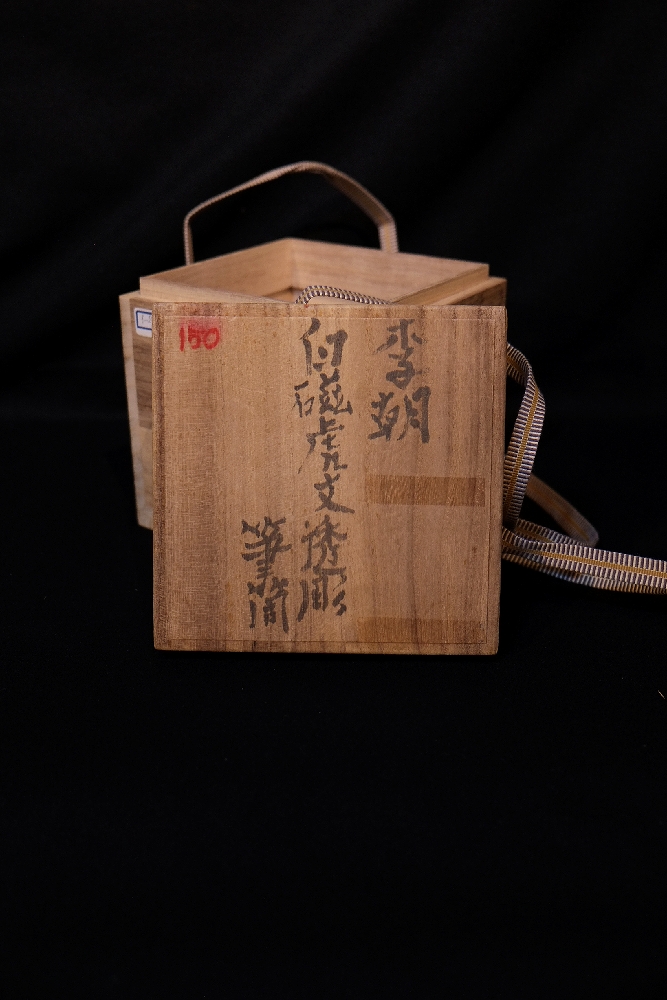 李朝
白磁虎文透彫
筆筒
150